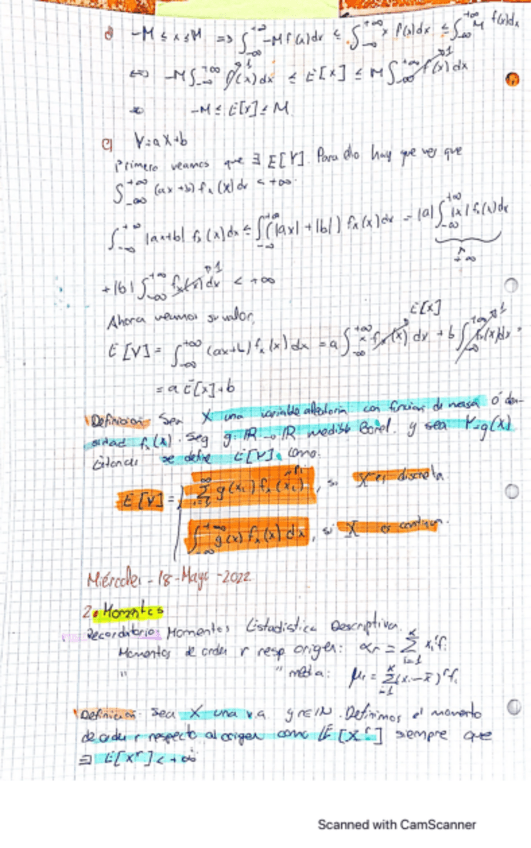 d) -M ≤ x ≤ M => ∫_{-∞}^{+∞} -M f(x)dx ≤ ∫_{-∞}^{+∞} x f(x)dx ≤ ∫_{-∞}^{+∞} M f(x)dx
<=> -M ∫_{-∞}^{+∞} f(x)dx ≤ E[x] ≤ M ∫_{-∞}^{+∞} f(x)dx
-M ≤ E[x] ≤ M
e) Y = aX+b
Primero veamos que ∃ E[Y]. Para ello hay que ver que
∫_{-∞}^{+∞} (ax+b) f_x(x)dx < +∞
∫_{-∞}^{+∞} |ax+b| f_x(x)dx ≤ ∫_{-∞}^{+∞} (|ax| + |b|) f_x(x)dx = |a| ∫_{-∞}^{+∞} |x| f_x(x)dx
+∞
+ |b| ∫_{-∞}^{+∞} f_x(x)dx < +∞
Ahora veamos su valor
E[Y] = ∫_{-∞}^{+∞} (ax+b) f_x(x)dx = a ∫_{-∞}^{+∞} x f_x(x)dx + b ∫_{-∞}^{+∞} f_x(x)dx =
= a E[x] + b
Definicion: Sea X una variable aleatoria con funcion de masa ó den-
sidad f_x(x). Sea g: IR → IR medible Borel. y sea Y=g(X)
Entonces se define E[Y] como:
E[Y] = Σ g(x_i) f_x(x_i), si X es discreta
∫_{-∞}^{+∞} g(x) f_x(x) dx, si X es continua.
Miércoles - 18 - Mayo - 2022
2. Momentos
Recordatorio: Momentos Estadistica Descriptiva.
Momentos de orden r resp origen: αr = Σ_{i=1}^{k} x_i^r f_i
" " media: μr = Σ_{i=1}^{k} (x_i - x̄)^r f_i
Definicion: Sea X una v.a y r∈IN. Definimos el momento
de orden r respecto al origen como E[X^r] siempre que
∃ E[X^r] < +∞
Scanned with CamScanner